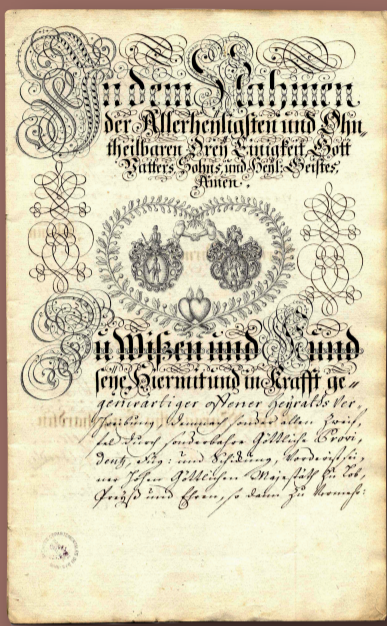 In dem Nahmen
der Allerheyligsten und Ohn=
theilbaren Drey Einigkeit, Gott
Vatters, Sohns, und Heyl: Geistes,
Amen.
Zu Wißen und Kund
seye Hiermit und in Krafft ge=
genwärtiger offener Heyraths Ver=
schreibung, demnach sonder allen Zweif=
fel durch sonderbahre Göttliche Provi=
dentz, Füg: und Schickung, Vorderist sei=
ner Hohen Göttlichen Majestäth zu Lob,
Preyß und Ehren, so dann zu Vermeh: